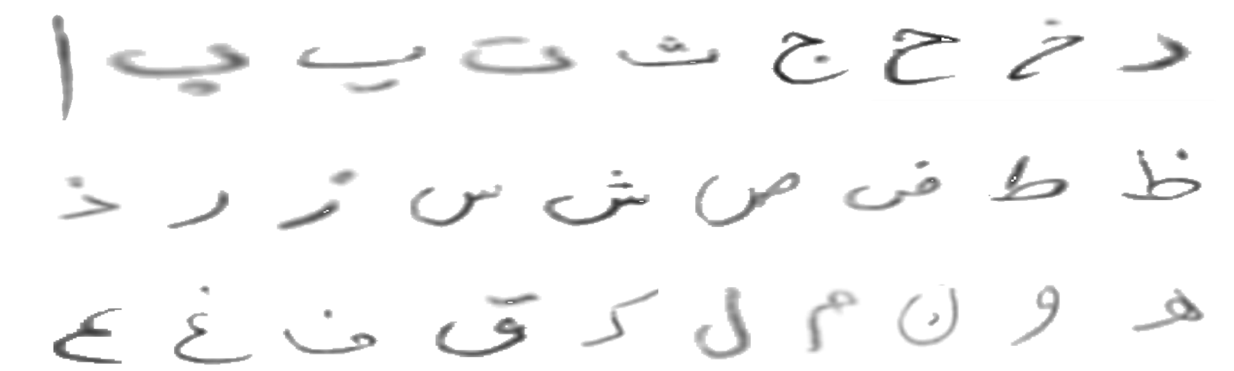 ا ب ي ت ث ج ح خ د
ذ ر ز س ش ص ض ط ظ
ع غ ف ق ك ل م ن و ه